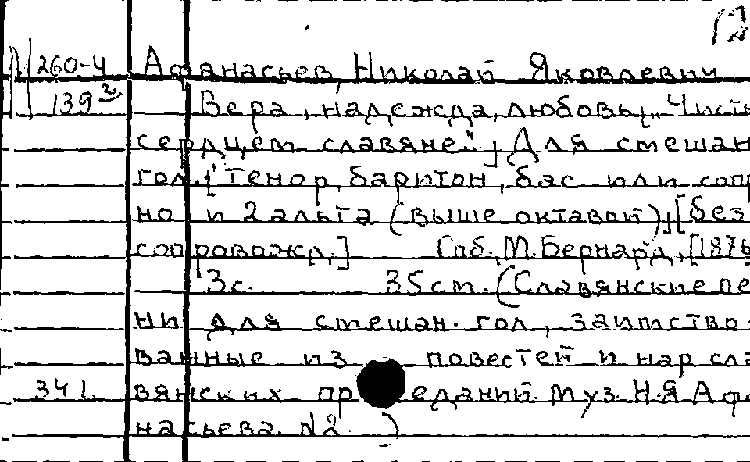 12
М 260-4 Афанасьев, Николай Яковлевич
139³ Вера, надежда, любовь „Чисты
сердцем славяне." Для смешан
гол. [тенор, баритон, бас или сопр
но и 2 альта (выше октавой)], [без
сопровожд.] Спб., М. Бернард, [1876
3с. 35 cm. (Славянские пе
ни для смешан. гол., заимство
ванные из повестей и нар сла
341 вянских пр еданий муз. Н.Я Афа
насьева №2. )